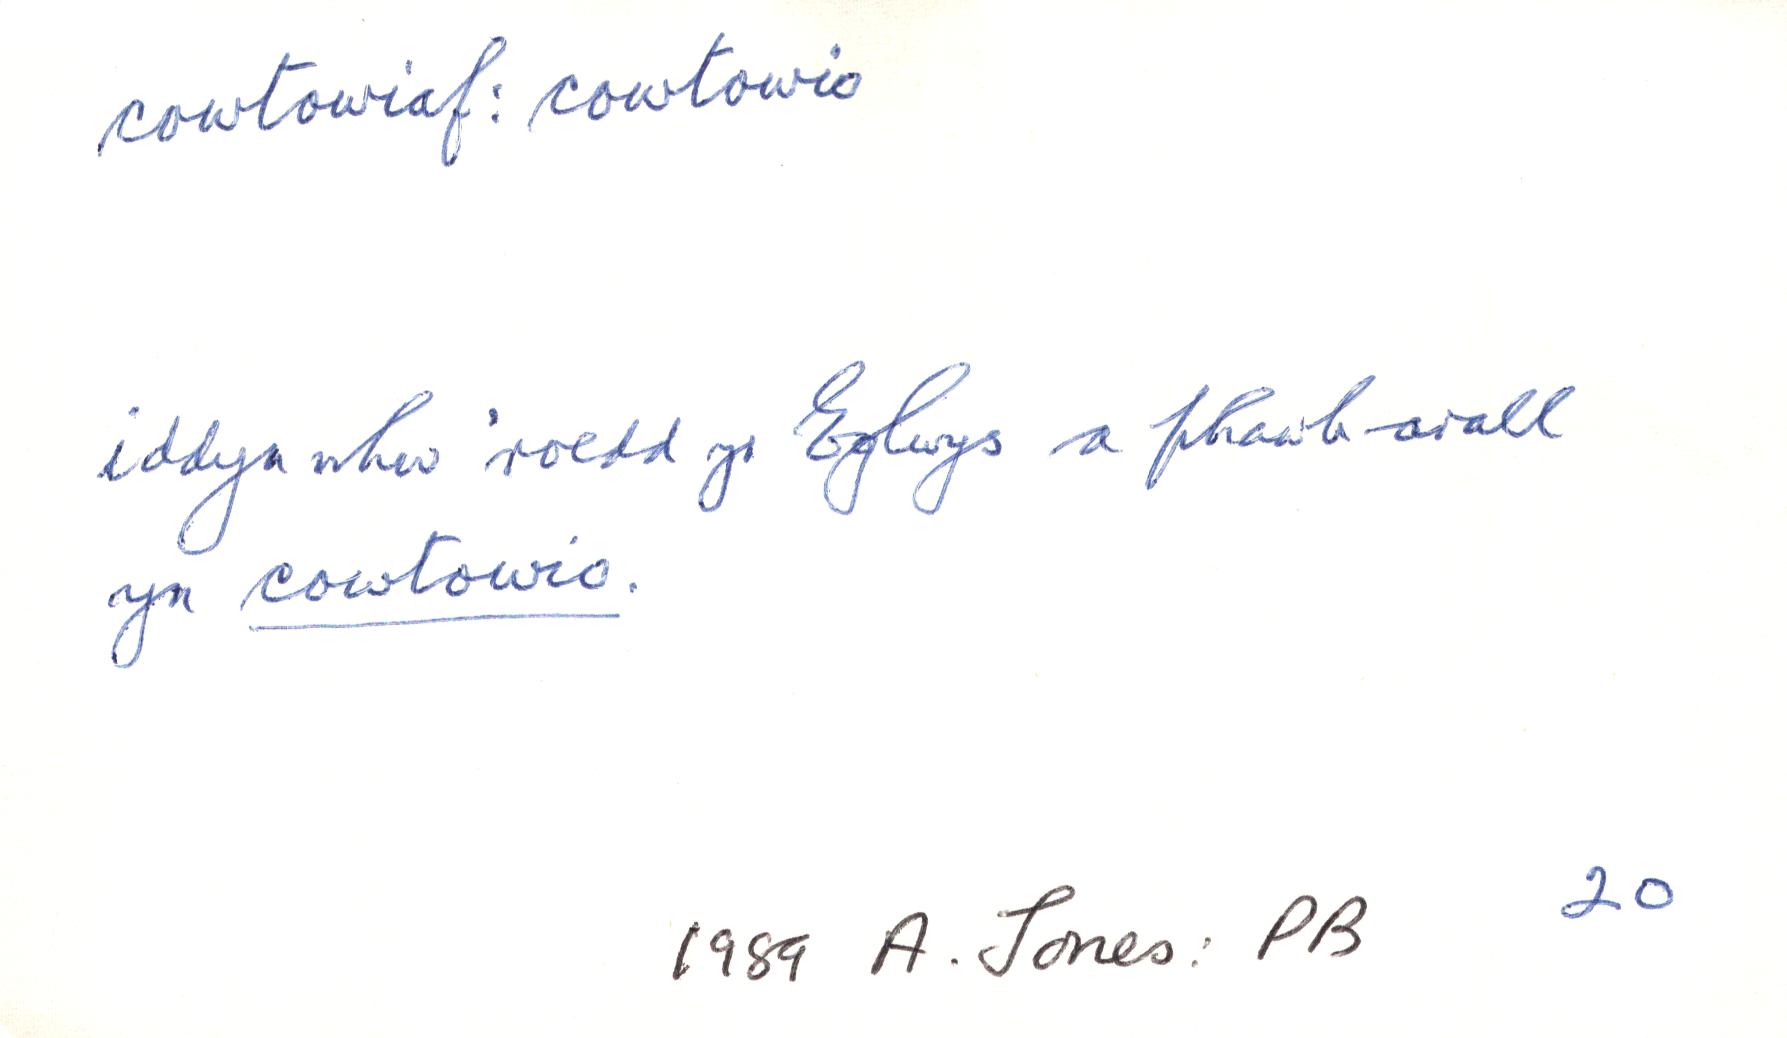 cowtowiaf: cowtowio
iddyn nhw 'roedd yr Eglwys a phawb arall
yn cowtowio.
1989 A. Jones: PB 20